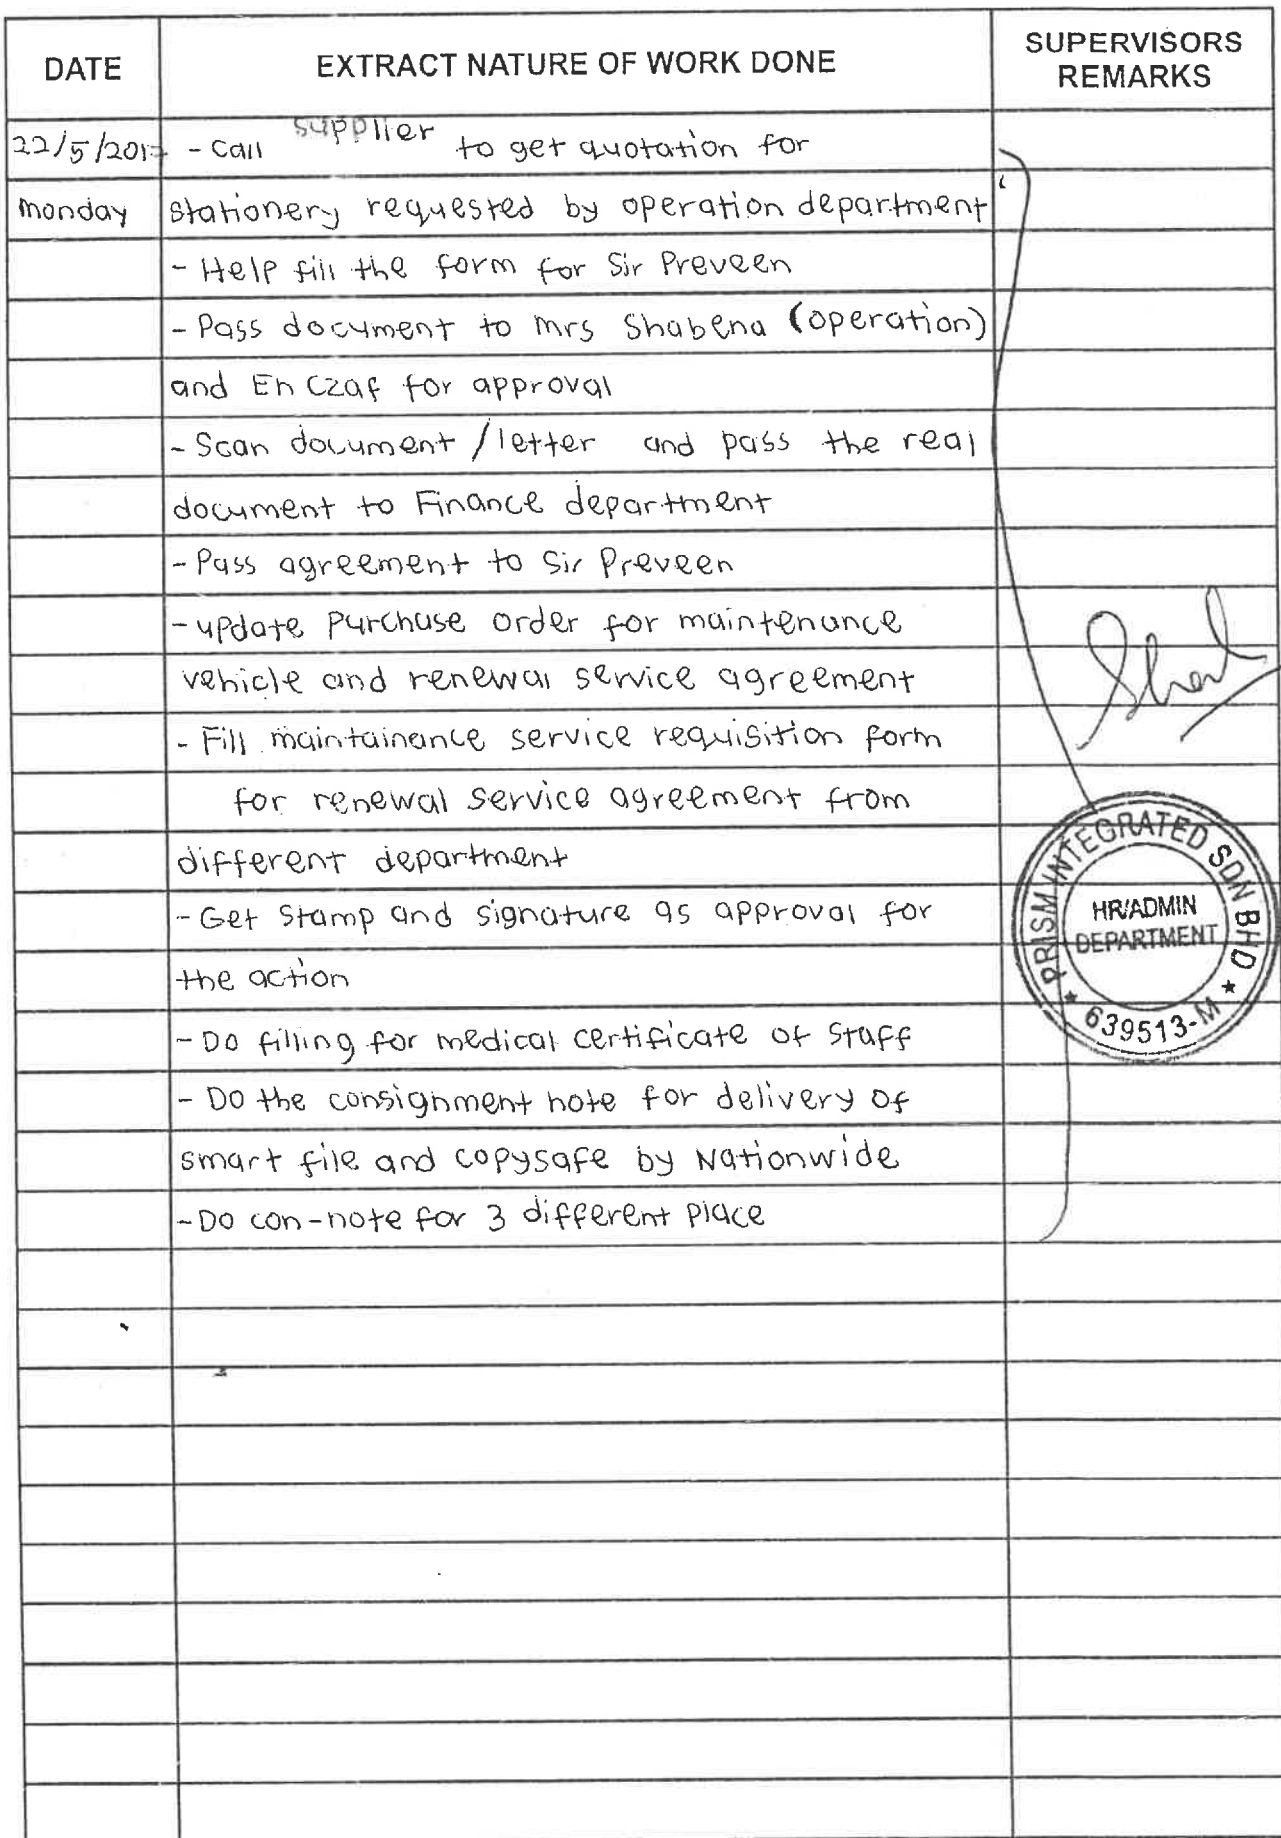 DATE EXTRACT NATURE OF WORK DONE SUPERVISORS REMARKS
22/5/2017 - Call supplier to get quotation for
monday stationery requested by operation department
- Help fill the form for Sir Preveen
- Pass document to Mrs Shabena (operation)
and En Czaf for approval
- Scan document / letter and pass the real
document to Finance department
- Pass agreement to Sir Preveen
- update purchase order for maintenance
vehicle and renewal service agreement
- Fill maintainance service requisition form
for renewal service agreement from
different department
- Get stamp and signature as approval for
the action
- Do filling for medical certificate of staff
- Do the consignment note for delivery of
smart file and copysafe by Nationwide
- Do con-note for 3 different place
PRISM INTEGRATED SDN BHD
HR/ADMIN
DEPARTMENT
639513-M